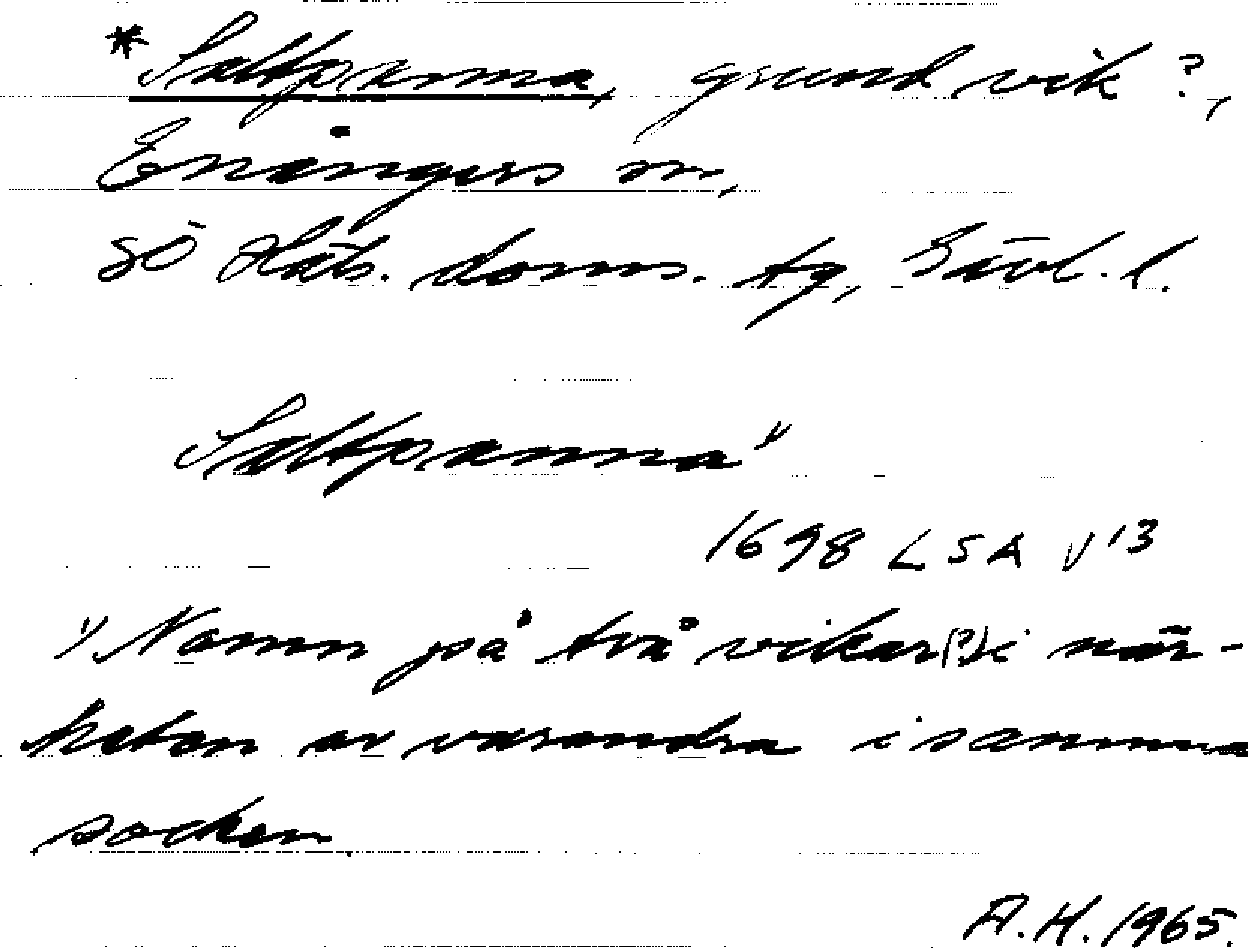 *Saltpanna, grund vik ?,
Enångers sn,
SÖ Häls. doms. tg, Gävl. l.
Saltpanna 1)
1698 LSA V 13
1) Namn på två vikar(?) i när-
heten av varandra i samma
socken.
A.H. 1965.